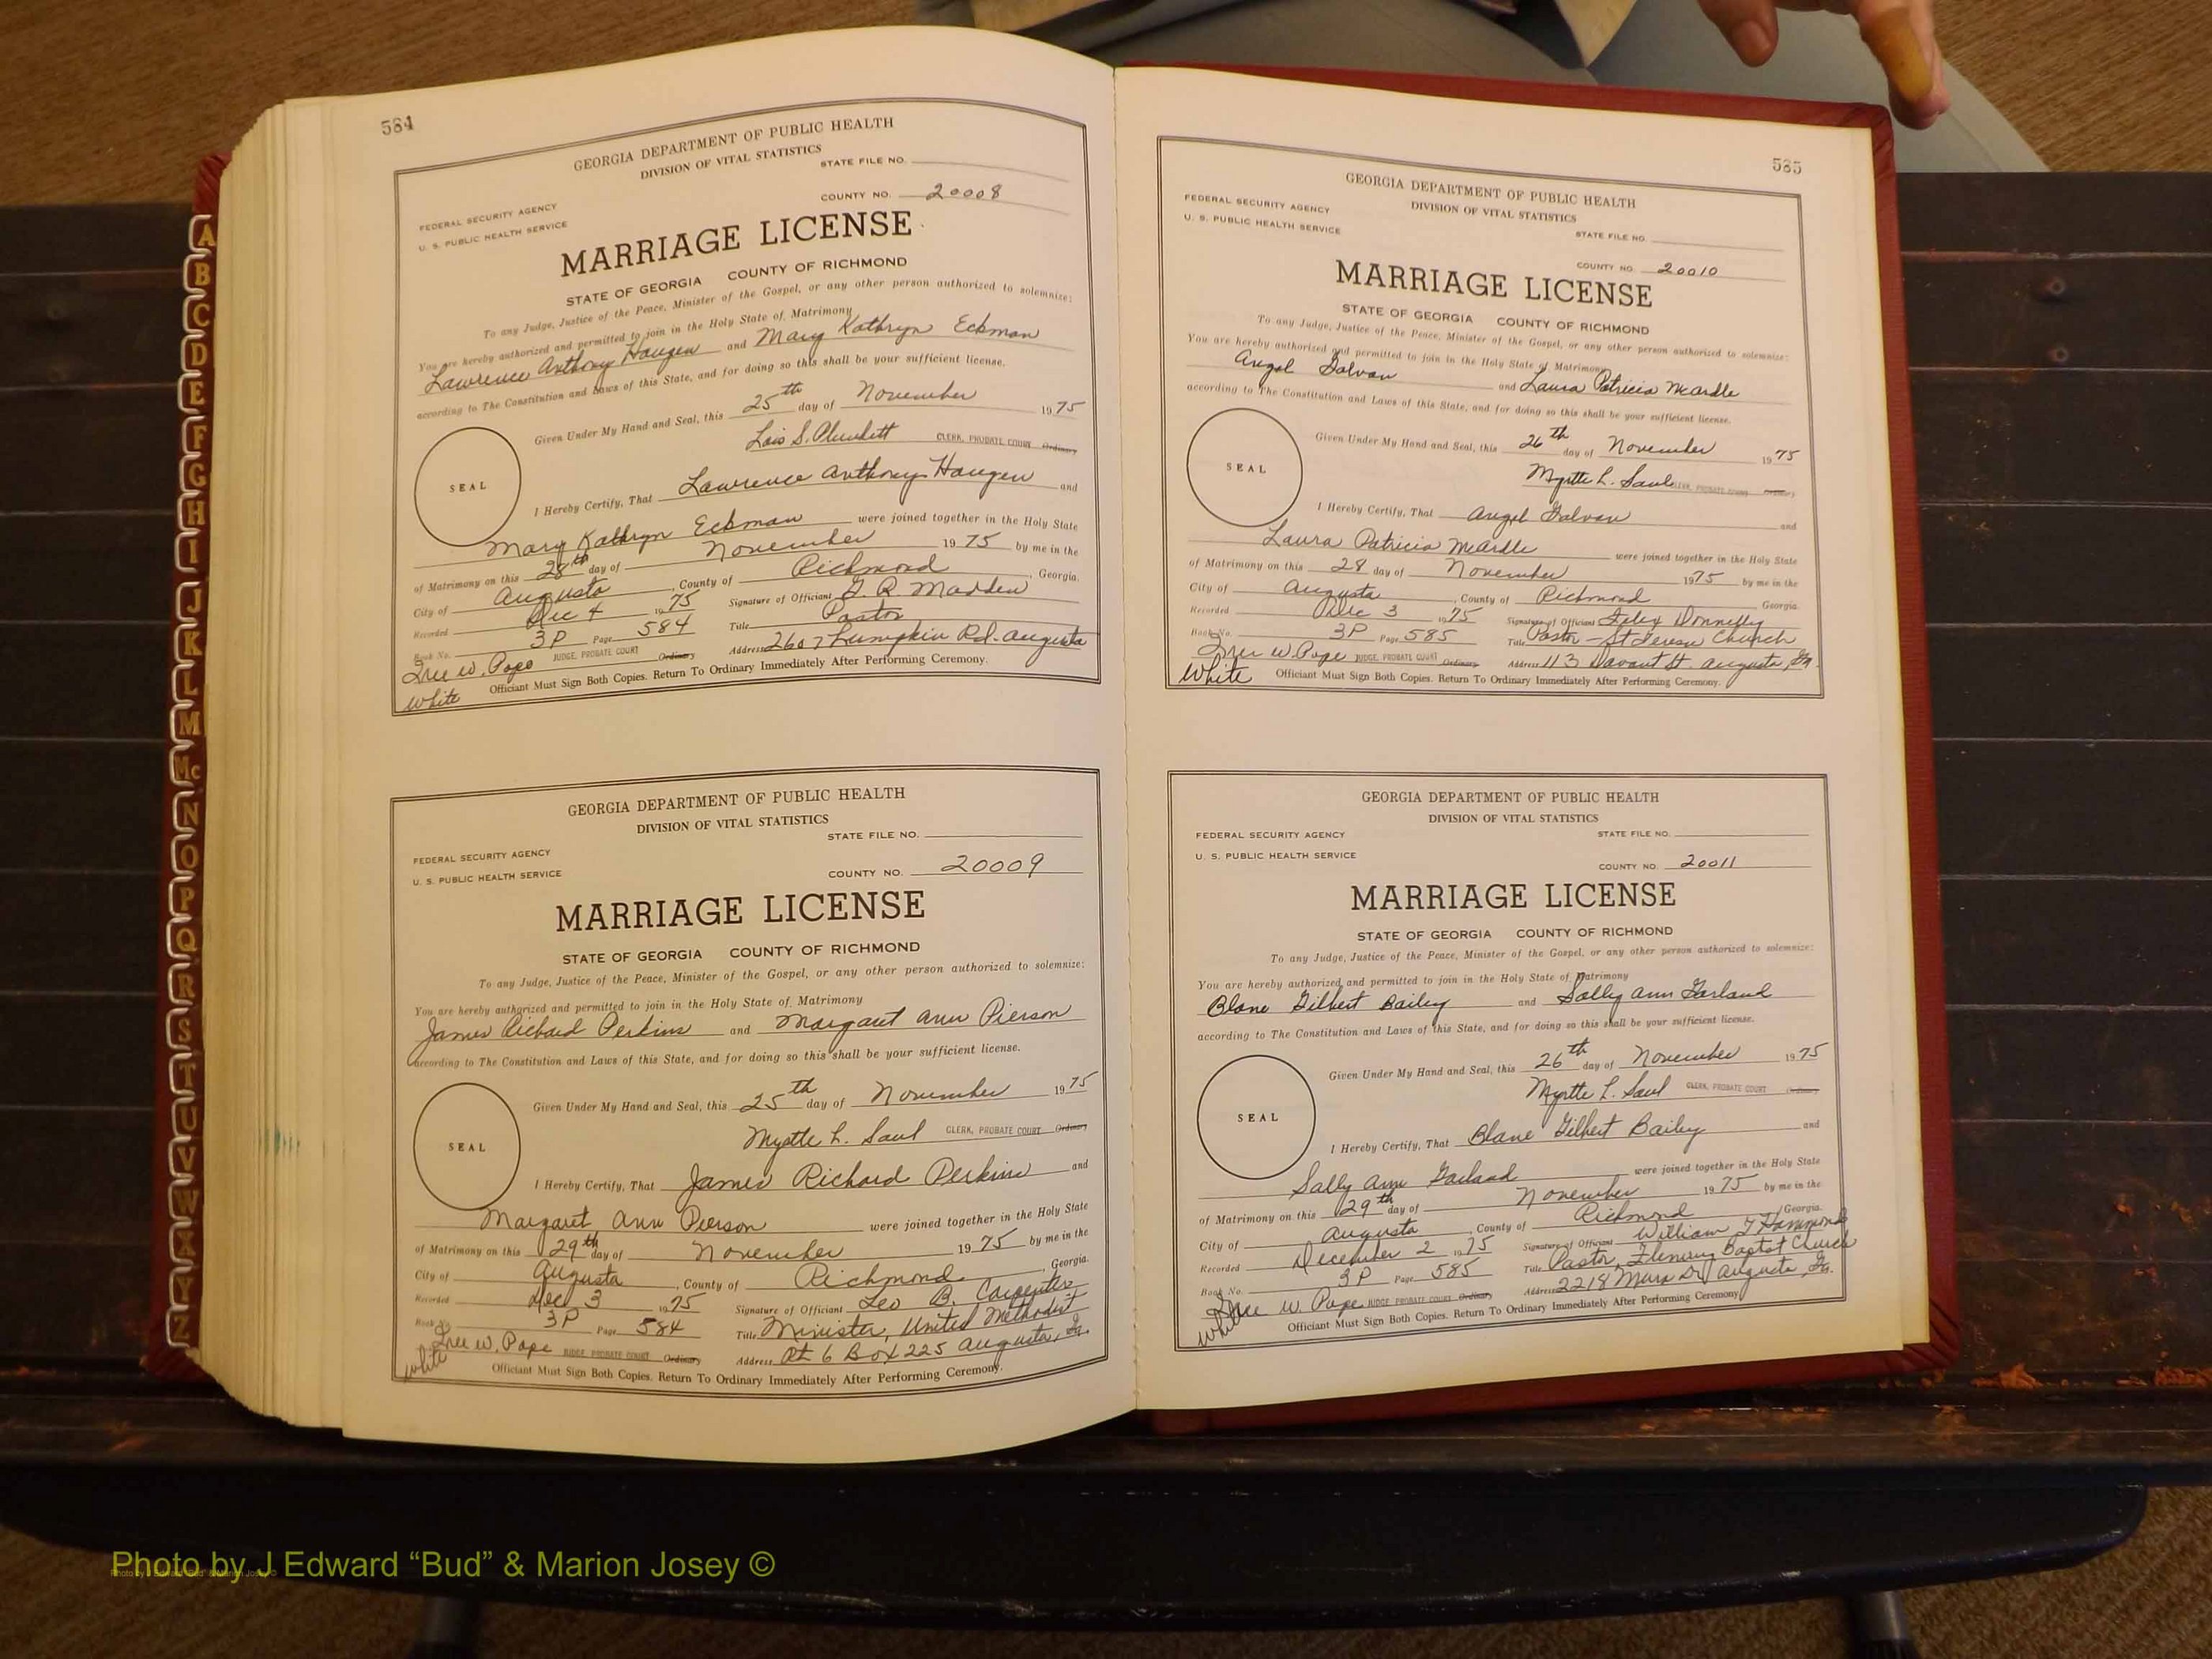 584
GEORGIA DEPARTMENT OF PUBLIC HEALTH
DIVISION OF VITAL STATISTICS
STATE FILE NO.
COUNTY NO. 20008
FEDERAL SECURITY AGENCY
U. S. PUBLIC HEALTH SERVICE
MARRIAGE LICENSE
STATE OF GEORGIA COUNTY OF RICHMOND
To any Judge, Justice of the Peace, Minister of the Gospel, or any other person authorized to solemnize:
You are hereby authorized and permitted to join in the Holy State of Matrimony
Lawrence Anthony Haugen and Mary Kathryn Eckman
according to The Constitution and Laws of this State, and for doing so this shall be your sufficient license.
Given Under My Hand and Seal, this 25th day of November 1975
Lois S. Plunkett CLERK, PROBATE COURT Ordinary
SEAL
I Hereby Certify, That Lawrence Anthony Haugen and
Mary Kathryn Eckman were joined together in the Holy State
of Matrimony on this 28th day of November 1975 by me in the
City of Augusta, County of Richmond, Georgia.
Recorded Dec 4 1975 Signature of Officiant G. R. Madden
Book No. 3P Page 584 Title Pastor
W. Pope JUDGE, PROBATE COURT Ordinary Address 2607 Lumpkin Rd. Augusta
White Officiant Must Sign Both Copies. Return To Ordinary Immediately After Performing Ceremony.
GEORGIA DEPARTMENT OF PUBLIC HEALTH
DIVISION OF VITAL STATISTICS
STATE FILE NO.
FEDERAL SECURITY AGENCY
U. S. PUBLIC HEALTH SERVICE
COUNTY NO. 20009
MARRIAGE LICENSE
STATE OF GEORGIA COUNTY OF RICHMOND
To any Judge, Justice of the Peace, Minister of the Gospel, or any other person authorized to solemnize:
You are hereby authorized and permitted to join in the Holy State of Matrimony
James Richard Perkins and Margaret Ann Pierson
according to The Constitution and Laws of this State, and for doing so this shall be your sufficient license.
Given Under My Hand and Seal, this 25th day of November 1975
Myrtle L. Saul CLERK, PROBATE COURT Ordinary
SEAL
I Hereby Certify, That James Richard Perkins and
Margaret Ann Pierson were joined together in the Holy State
of Matrimony on this 29th day of November 1975 by me in the
City of Augusta, County of Richmond, Georgia.
Recorded Dec 3 1975 Signature of Officiant Leo B. Carpenter
Book No. 3P Page 584 Title Minister, United Methodist
W. Pope JUDGE PROBATE COURT Ordinary Address Rt 6 Box 225 Augusta, Ga.
White Officiant Must Sign Both Copies. Return To Ordinary Immediately After Performing Ceremony.
585
GEORGIA DEPARTMENT OF PUBLIC HEALTH
DIVISION OF VITAL STATISTICS
FEDERAL SECURITY AGENCY
U. S. PUBLIC HEALTH SERVICE
STATE FILE NO.
COUNTY NO. 20010
MARRIAGE LICENSE
STATE OF GEORGIA COUNTY OF RICHMOND
To any Judge, Justice of the Peace, Minister of the Gospel, or any other person authorized to solemnize:
You are hereby authorized and permitted to join in the Holy State of Matrimony
Angel Galvan and Laura Patricia McArdle
according to The Constitution and Laws of this State, and for doing so this shall be your sufficient license.
Given Under My Hand and Seal, this 26th day of November 1975
Myrtle L. Saul CLERK, PROBATE COURT Ordinary
SEAL
I Hereby Certify, That Angel Galvan and
Laura Patricia McArdle were joined together in the Holy State
of Matrimony on this 28 day of November 1975 by me in the
City of Augusta, County of Richmond Georgia.
Recorded Dec 3 1975 Signature of Officiant Felix Donnelly
Book No. 3P Page 585 Title Pastor - St Teresa Church
W. Pope JUDGE, PROBATE COURT Ordinary Address 113 Davant St. Augusta, Ga.
White Officiant Must Sign Both Copies. Return To Ordinary Immediately After Performing Ceremony.
GEORGIA DEPARTMENT OF PUBLIC HEALTH
DIVISION OF VITAL STATISTICS
FEDERAL SECURITY AGENCY STATE FILE NO.
U. S. PUBLIC HEALTH SERVICE
COUNTY NO. 20011
MARRIAGE LICENSE
STATE OF GEORGIA COUNTY OF RICHMOND
To any Judge, Justice of the Peace, Minister of the Gospel, or any other person authorized to solemnize:
You are hereby authorized and permitted to join in the Holy State of Matrimony
Blane Gilbert Bailey and Sally Ann Garland
according to The Constitution and Laws of this State, and for doing so this shall be your sufficient license.
Given Under My Hand and Seal, this 26th day of November 1975
Myrtle L. Saul CLERK, PROBATE COURT Ordinary
SEAL
I Hereby Certify, That Blane Gilbert Bailey and
Sally Ann Garland were joined together in the Holy State
of Matrimony on this 29th day of November 1975 by me in the
City of Augusta, County of Richmond Georgia.
Recorded December 2 1975 Signature of Officiant William J Hammond
Book No. 3P Page 585 Title Pastor, Fleming Baptist Church
W. Pope JUDGE PROBATE COURT Ordinary Address 2218 Mura Dr Augusta, Ga.
White Officiant Must Sign Both Copies. Return To Ordinary Immediately After Performing Ceremony
A
B
C
D
E
F
G
H
I
J
K
L
M
Mc
N
O
P
Q
R
S
T
U
V
W
X
Y
Z
Photo by J Edward “Bud” & Marion Josey ©
Photo by J Edward "Bud" & Marion Josey ©